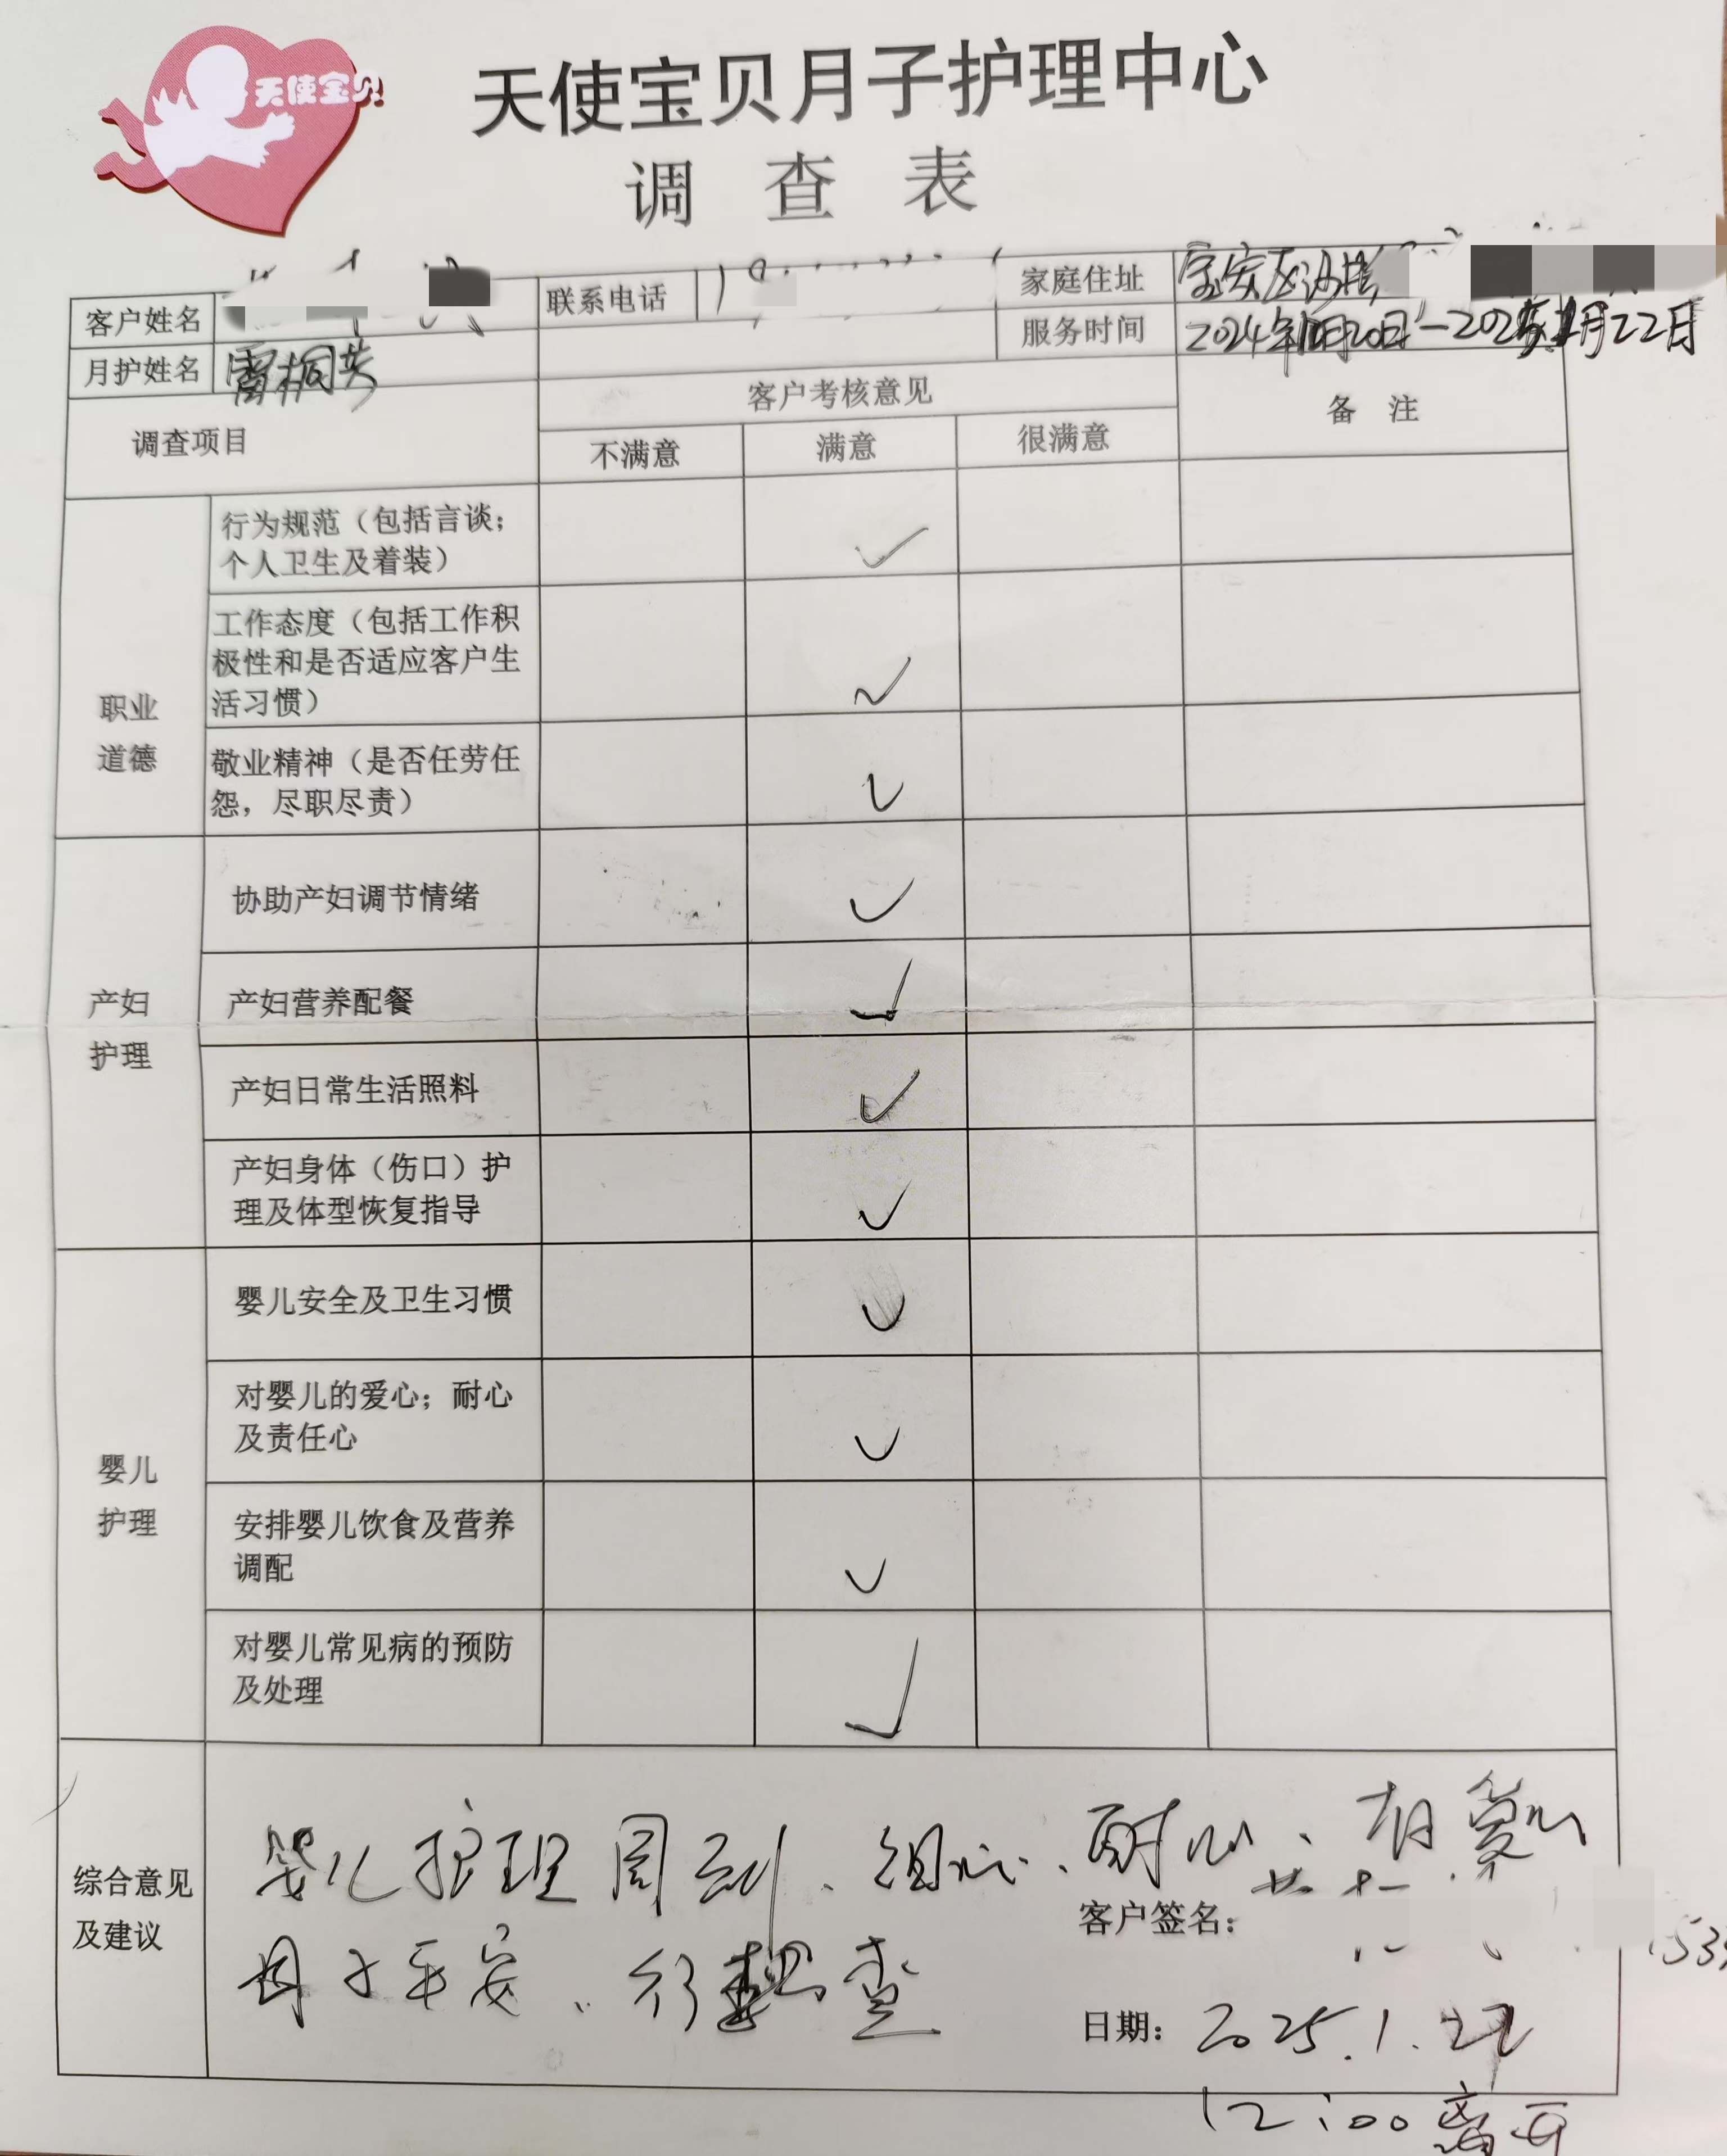 天使宝贝
天使宝贝月子护理中心
调查表
客户姓名 联系电话 家庭住址 宝安区沙
月护姓名 雷桐英 服务时间 2024年 月20日-2025年1月22日
调查项目 客户考核意见 备 注
不满意 满意 很满意
职业
道德
行为规范（包括言谈；
个人卫生及着装） ✓
工作态度（包括工作积
极性和是否适应客户生
活习惯） ✓
敬业精神（是否任劳任
怨，尽职尽责） ✓
产妇
护理
协助产妇调节情绪 ✓
产妇营养配餐 ✓
产妇日常生活照料 ✓
产妇身体（伤口）护
理及体型恢复指导 ✓
婴儿
护理
婴儿安全及卫生习惯 ✓
对婴儿的爱心；耐心
及责任心 ✓
安排婴儿饮食及营养
调配 ✓
对婴儿常见病的预防
及处理 ✓
综合意见
及建议
婴儿护理周到、细心、耐心、有爱心
客户签名：
母子平安、行李 查
日期：2025.1.22
12:00离开